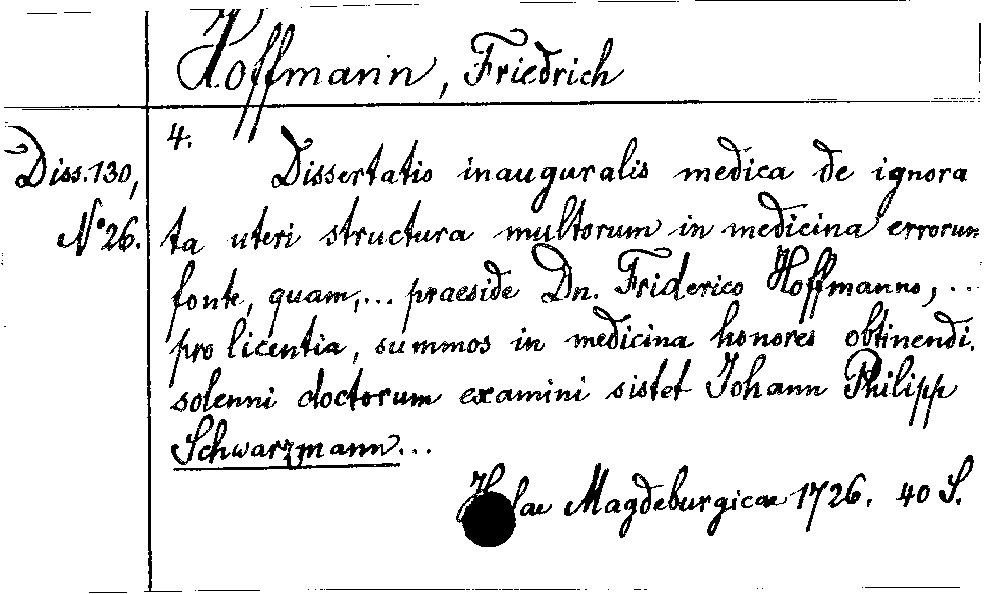 Hoffmann, Friedrich
Diss. 130,
N° 26.
4.
Dissertatio inauguralis medica de ignora
ta uteri structura multorum in medicina errorum
fonte, quam,... praeside Dn. Friderico Hoffmanno, ..
pro licentia, summos in medicina honores obtinendi.
solenni doctorum examini sistet Johann Philipp
Schwarzmann...
Magdeburgicae 1726. 40 S.